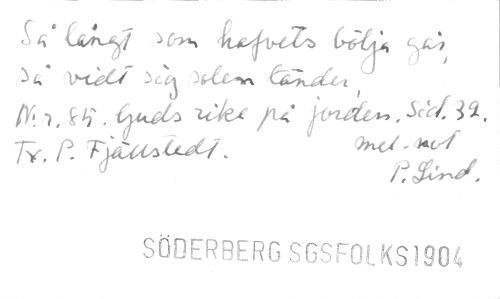 Så långt som hafvets bölja går,
så vidt sig solen tänder,
N:r. 85. Guds rike på jorden. Sid. 32.
Tx. P. Fjällstedt. mel. not
P. Lind.
SÖDERBERG SGSFOLKS1904